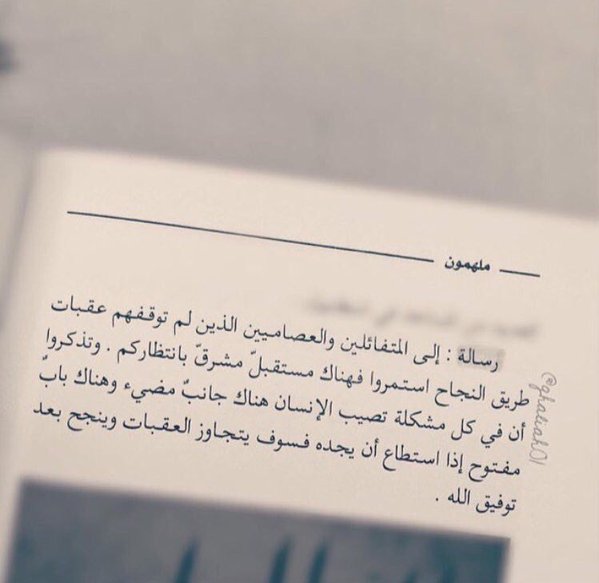 ملهمون
رسالة : إلى المتفائلين والعصاميين الذين لم توقفهم عقبات
طريق النجاح استمروا فهناك مستقبلٌ مشرقٌ بانتظاركم . وتذكروا
أن في كل مشكلة تصيب الإنسان هناك جانبٌ مضيء وهناك بابٌ
مفتوح إذا استطاع أن يجده فسوف يتجاوز العقبات وينجح بعد
توفيق الله .